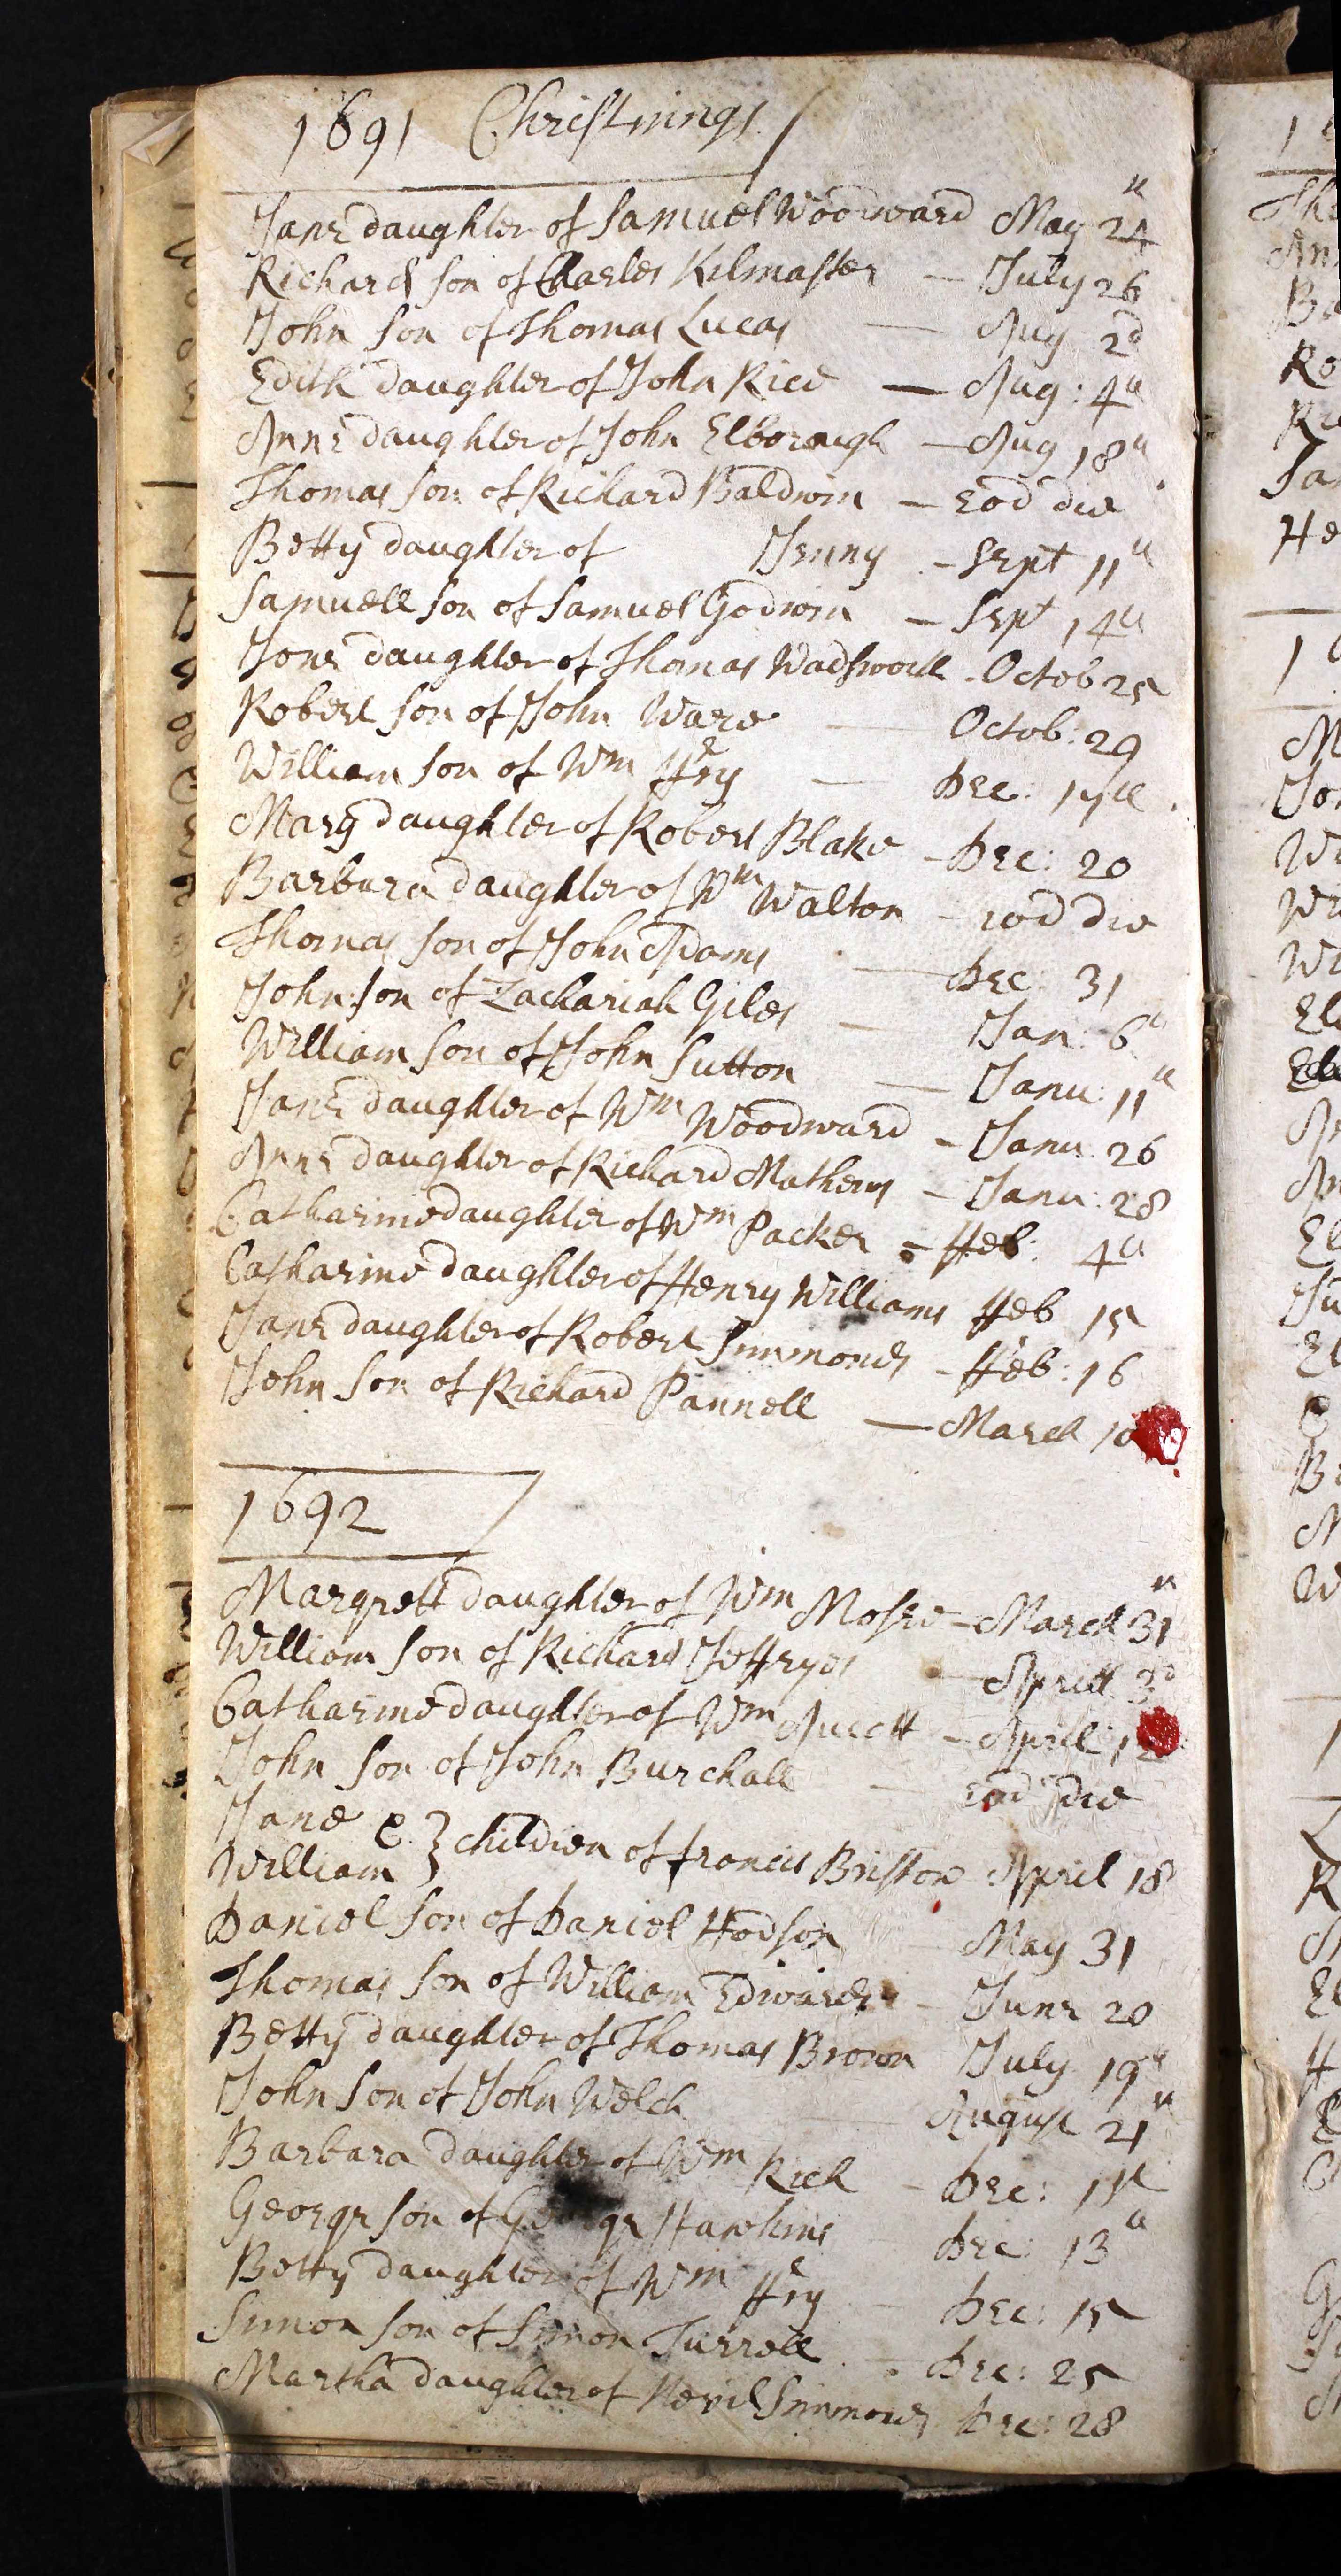 1691 Christnings
Jane daughter of Samuel Woodward May 24th
Richard son of Charles Kilmaster — July 26
John son of Thomas Lucas — Aug 2d
Edith daughter of John Rice — Aug: 4th
Anne daughter of John Elborough — Aug 18th
Thomas son of Richard Baldwin — eod die
Betty daughter of Jenny - Sept 11th
Samuell son of Samuel Godwin — Sept 14th
Jone daughter of Thomas Wadsworth - Octob 25
Robert son of John Ware — Octob: 29
William son of Wm ffry — Dec: 17th
Mary daughter of Robert Blake - Dec: 20
Barbara daughter of Wm Walton - eod die
Thomas son of John Adams — Dec: 31
John son of Zachariah Giles — Jan: 6th
William son of John Sutton — Janu: 11th
Jane daughter of Wm Woodward - Janu: 26
Anne daughter of Richard Mathews - Janu: 28
Catharine daughter of Wm Packer - ffeb: 4th
Catharine daughter of Henry Williams ffeb 15
Jane daughter of Robert Simmonds - ffeb: 16
John son of Richard Pannell — March 10
1692
Margrett daughter of Wm Mosse - March 31th
William son of Richard Jeffryes — Aprill 3d
Catharine daughter of Wm - April: 12
John son of John Burchall — eod die
Jane &
William } children of francis Bristow April 18
Daniel son of Daniel Hodson May 31
Thomas son of William Edwards - June 20
Betty daughter of Thomas Brown July 19th
John son of John Welch — August 21th
Barbara daughter of Wm Rich - Dec: 1st
George son of George Hawkins Dec: 13th
Betty daughter of Wm ffry - Dec: 15
Simon son of Simon Turrell - Dec: 25
Martha daughter of Nevil Simmonds Dec: 28